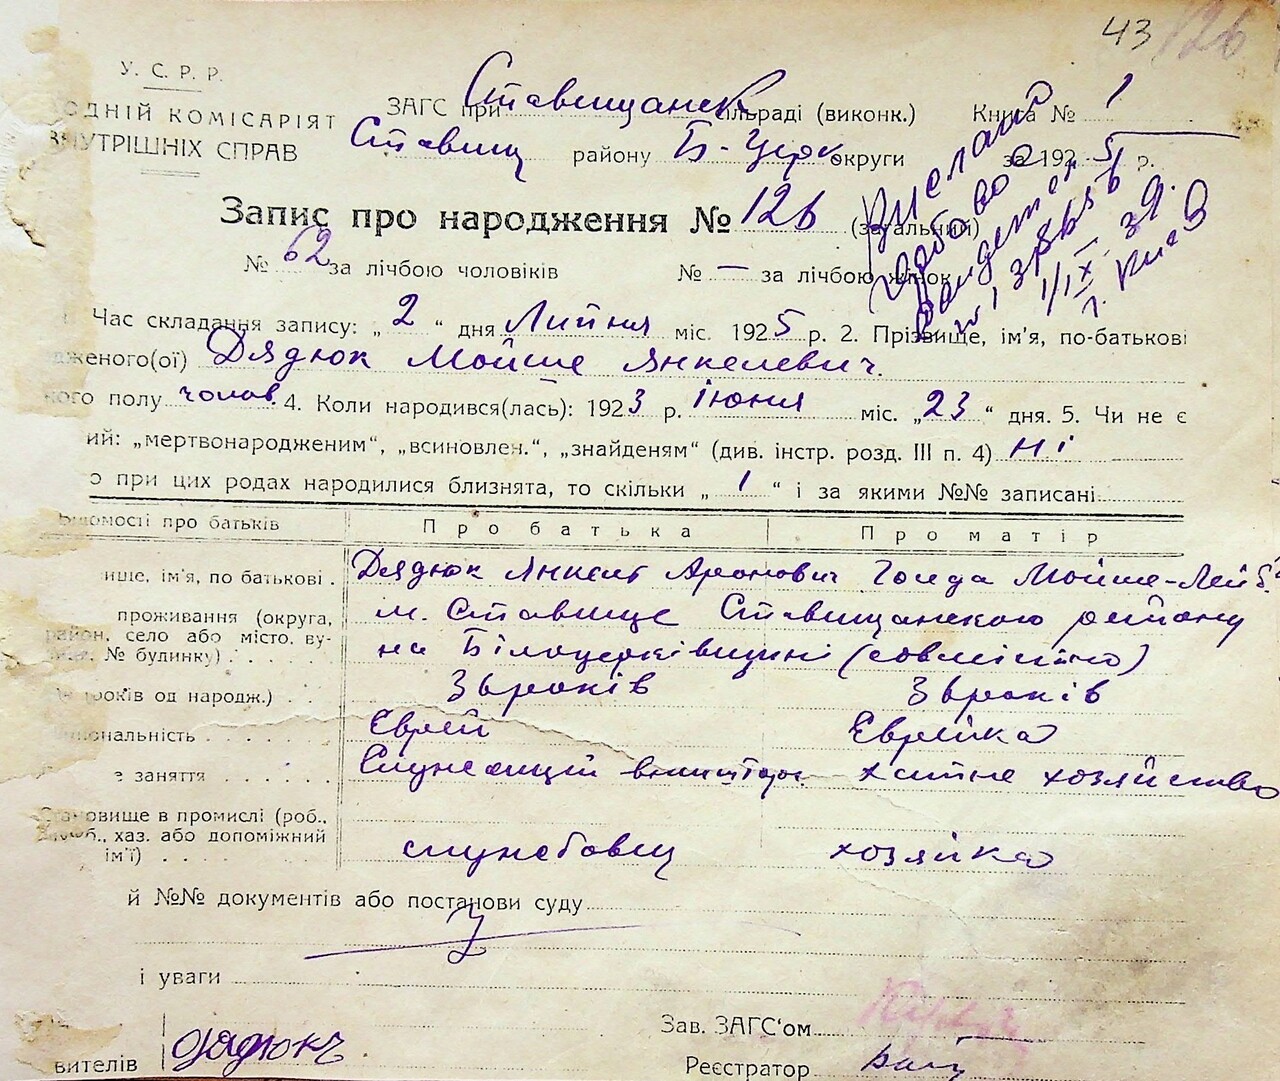 43 126
У. С. Р. Р.
ОДНІЙ КОМІСАРІЯТ
ВНУТРІШНІХ СПРАВ
ЗАГС при Ставищанск сільраді (виконк.) Книга № 1
Ставищ району Б-Церк округи за 1925 р.
Запис про народження № 126 (загальний)
№ 62 за лічбою чоловіків № — за лічбою жінок
1/IX 39.
г. Киев
Час складання запису: „ 2 “ дня Липня міс. 1925 р. 2. Прізвище, ім'я, по-батькові
дженого(ої) Дядюк Мойше Янкелевич.
ного полу чолов. 4. Коли народився(лась): 1923 р. Іюня міс. „ 23 “ дня. 5. Чи не є
ий: „мертвонародженим“, „всиновлен.“, „знайденям“ (див. інстр. розд. III п. 4) ні
о при цих родах народилися близнята, то скільки „ 1 “ і за якими №№ записані
Відомості про батьків Про батька Про матір
ище, ім'я, по батькові . Дядюк Янкель Аронович Голда Мойше-Лейб
проживання (округа, м. Ставище Ставищанского району
район, село або місто, ву-
№ будинку) . на Білоцерківщині (совмісно)
років од народж.) . 36 років 36 років
ціональність Еврей Еврейка
е заняття Служащий хатне хозяйство
Становище в промислі (роб.,
б., хаз. або допоміжний
ім'ї) службовец хозяйка
й №№ документів або постанови суду
і уваги
Зав. ЗАГС'ом
вителів Дядюк
Реєстратор